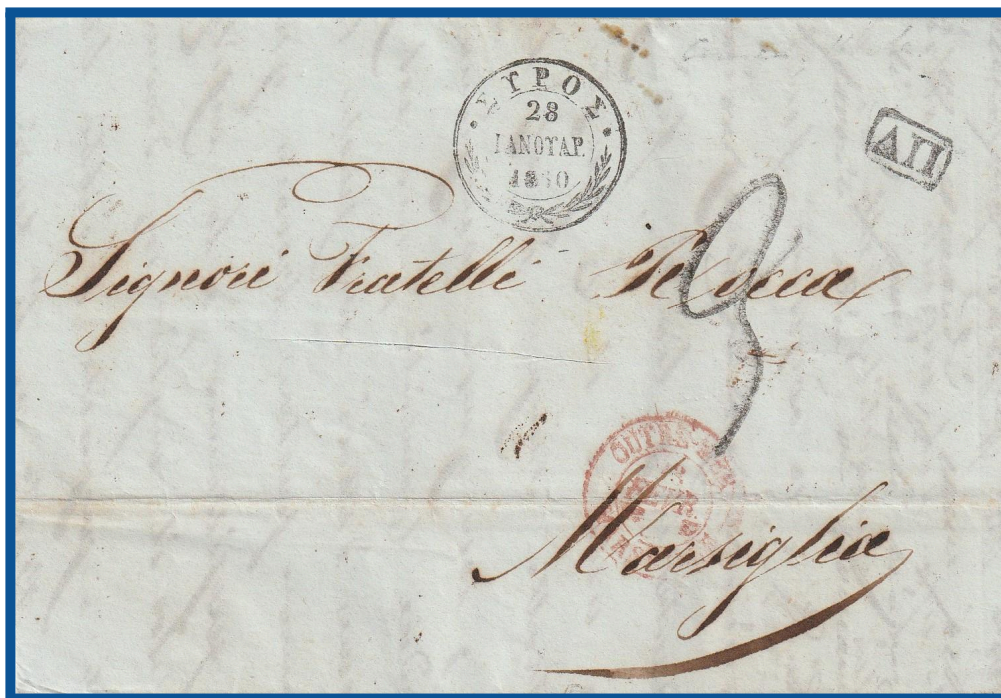 ΣΥΡΟΣ
28
ΙΑΝΟΥΑΡ
1860
ΔΠ
Signori Fratelli Rocca
OUTRE-MER
Marsiglia